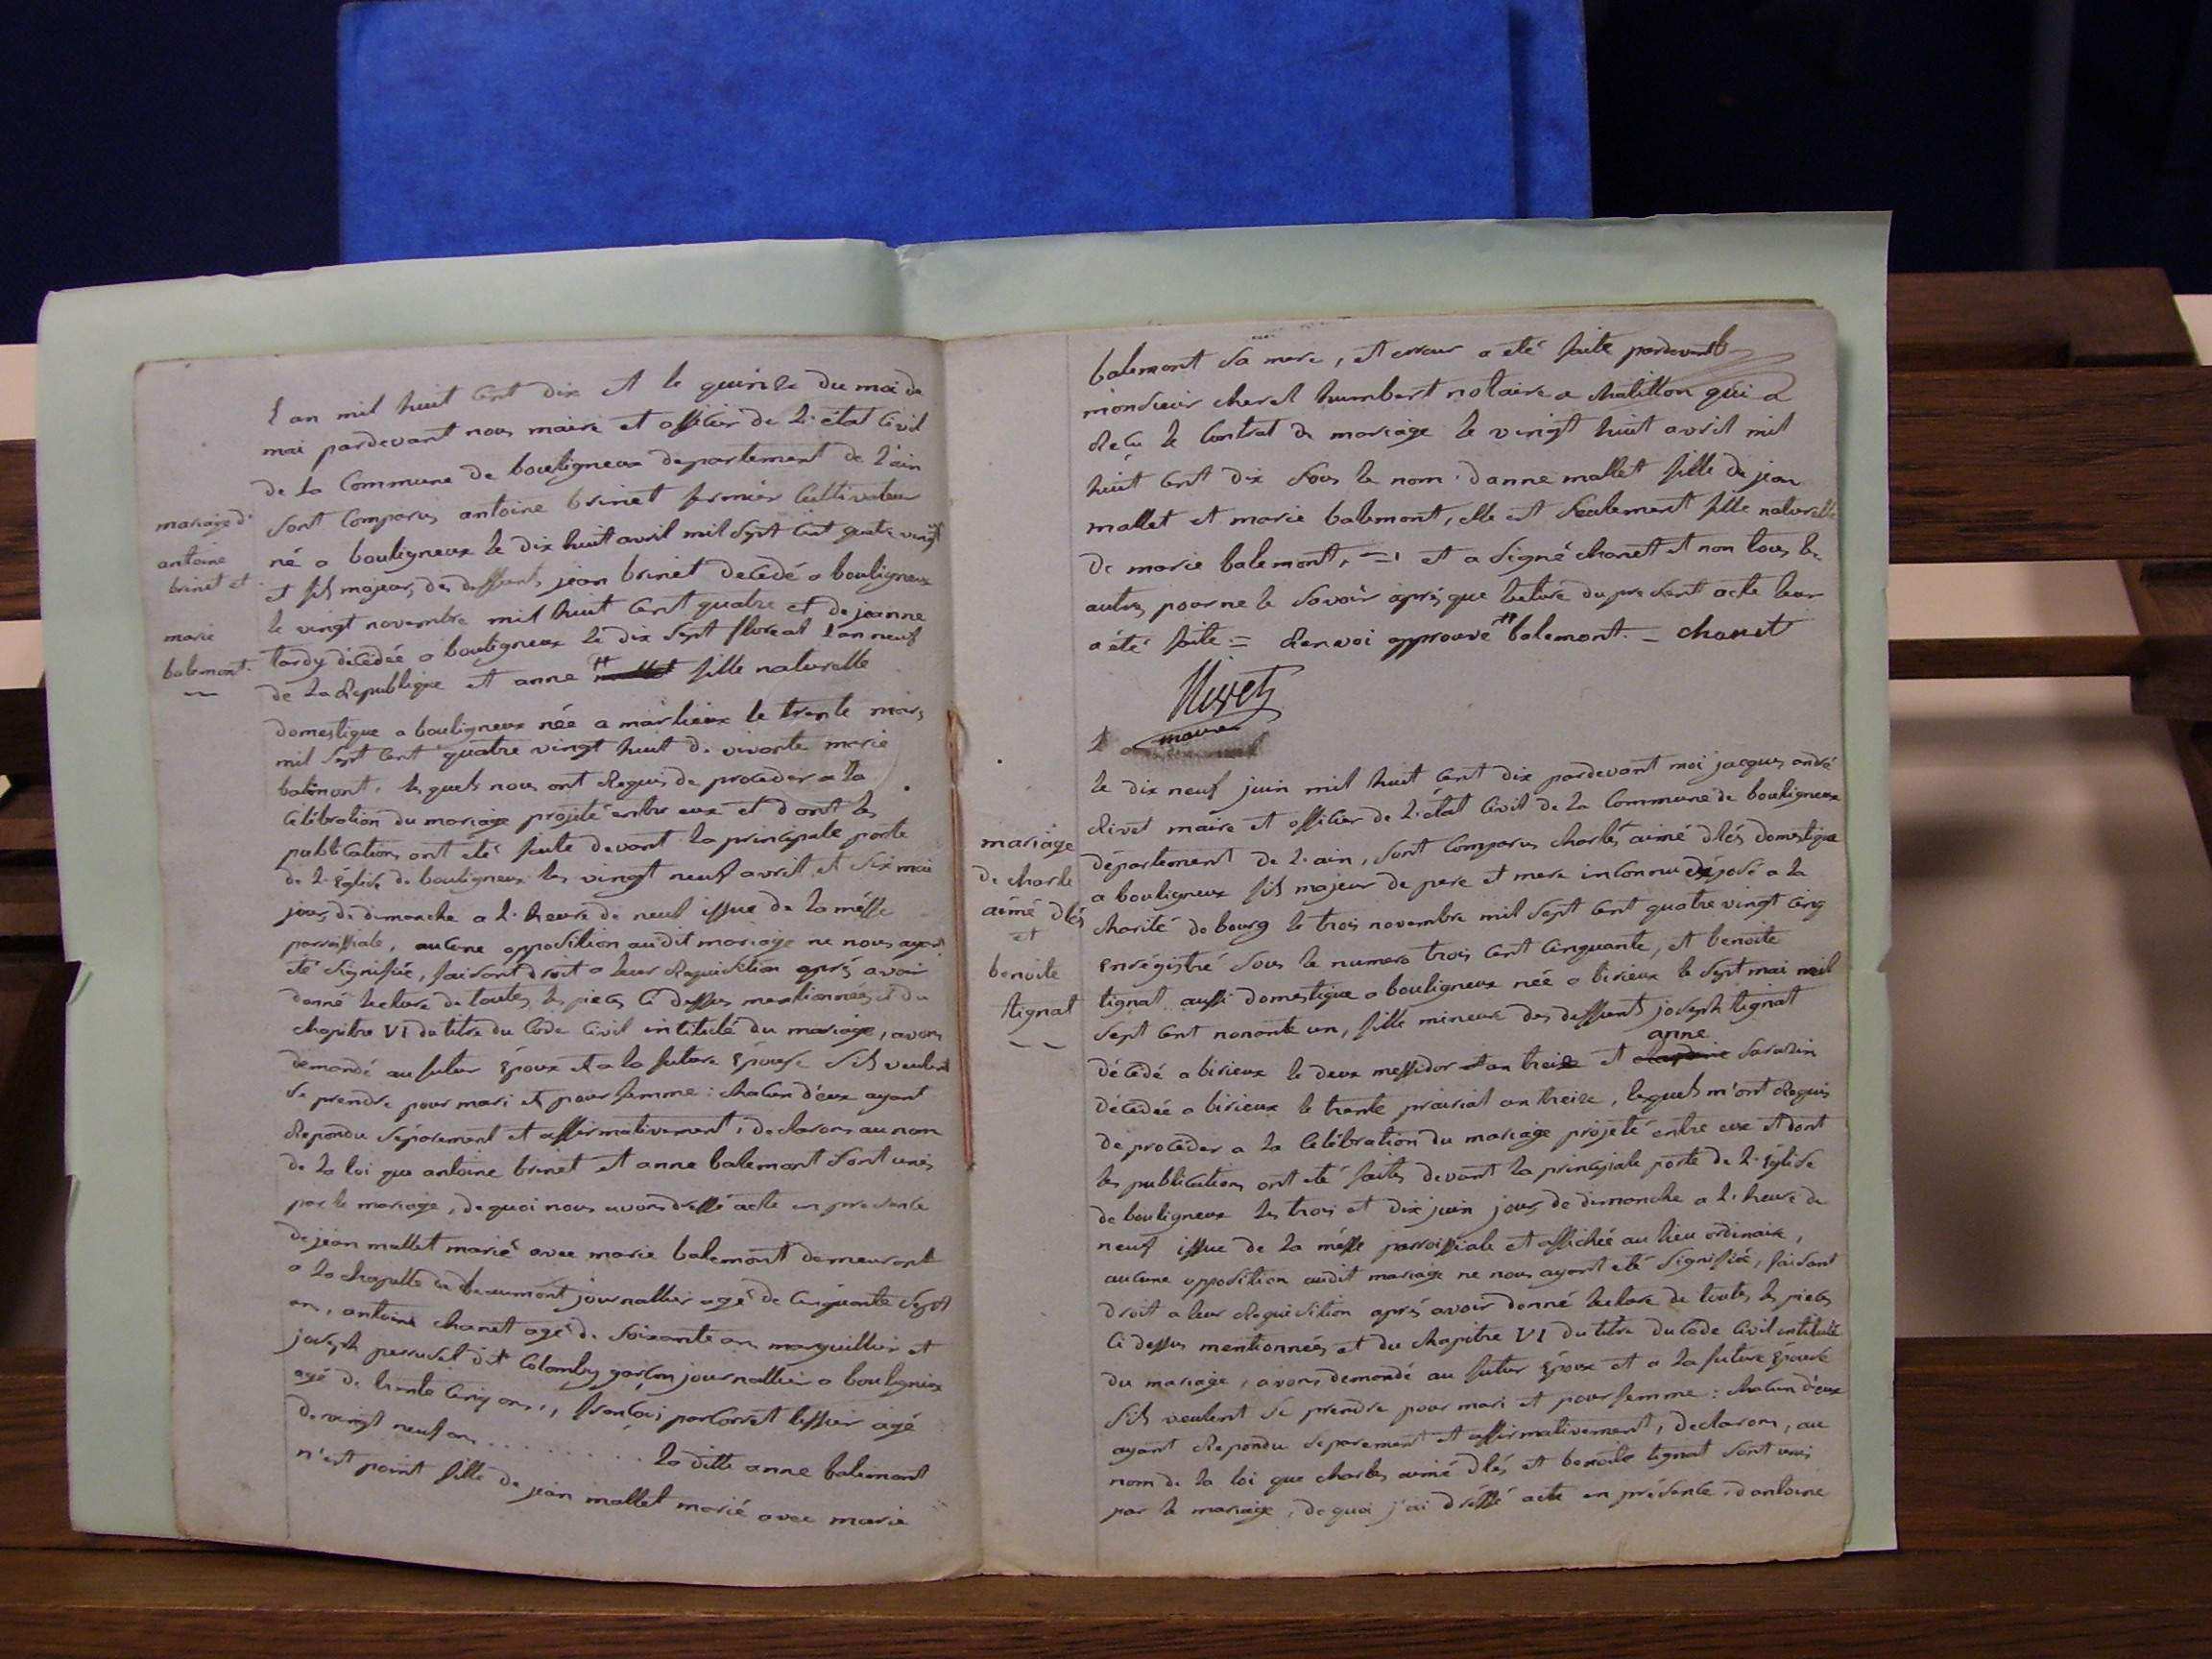 l an mil huit cent dix et le quinze du moi de
mai pardevant nous maire et officier de l'état civil
de la commune de bouligneux departement de l'ain
sont comparus antoine brinet fermier cultivateur
né a bouligneux le dix huit avril mil sept cent quatre vingt
et fils majeur des deffunts jean brinet decedé a bouligneux
le vingt novembre mil huit cent quatre et de jeanne
tardy décédée a bouligneux le dix sept floreal l'an neuf
de la Republique et anne fille naturelle
domestique a bouligneux née a marlieux le trente mars
mil sept cent quatre vingt huit de vivante marie
balemont. lesquels nous ont Requis de proceder a la
célébration du mariage projeté entre eux et dont les
publications ont eté faite devant la principale porte
de l'église de bouligneux les vingt neuf avril et six mai
jours de dimanche a l'heure de neuf issue de la mésse
parroissiale, aucune opposition audit mariage ne nous ayant
été signifiée, faisant droit a leur Requisition aprés avoir
donné lecture de toutes les pieces ci dessus mentionnées et du
chapitre VI du titre du Code Civil intitulé du mariage, avons
demandé au futur époux et a la future épouse s'ils veulent
se prendre pour mari et pour femme : chacun d'eux ayant
Repondu séparement et affirmativement, declarons au nom
de la loi que antoine brinet et anne balemont sont unis
par le mariage, de quoi nous avons dressé acte en presence
de jean mallet marié avec marie balemont demeurant
a la chapelle du beaumont journallier agé de cinquante sept
ans, antoine chanet agé de soixante ans marguillier et
joseph perruset dit Colomby garçon journallier a bouligneux
agé de trente cinq ans, françois parcorret tessier agé
de vingt neuf ans . . . . . . . . la ditte anne balemont
n'est point fille de jean mallet marié avec marie
mariage d'
antoine
brinet et
marie
balemont.
balemont sa mere, et erreur a eté faite pardevant
monsieur cheret humbert notaire a chatillon qui a
Recu le contrat de mariage le vingt huit avril mil
huit cent dix sous le nom d'anne mallet fille de jean
mallet et marie balemont, elle est seulement fille naturelle
de marie balemont, et a signé chanet et non tous les
autres pour ne le savoir aprés que lecture du present acte leur
a été faite = Renvoi approuvé balemont. - chanet
Rivet
maire
le dix neuf juin mil huit cent dix pardevant moi jacques andré
Rivet maire et officier de l'état Civil de la Commune de bouligneux
département de l'ain, sont comparus charles aimé dlés domestique
a bouligneux fils majeur de pere et mere inconnu exposé a la
charité de bourg le trois novembre mil sept cent quatre vingt cinq
enrégistré sous le numero trois cent cinquante, et benoite
tignat aussi domestique a bouligneux née a birieux le sept mai mil
sept cent nonante un, fille mineure des deffunts joseph tignat
décédé a birieux le deux messidor an treize et anne sarazin
décédée a birieux le trente prairial an treize, lesquels m'ont Requis
de procéder a la Célébration du mariage projeté entre eux et dont
les publications ont eté faites devant la principale porte de l'église
de bouligneux les trois et dix juin jours de dimanche a l'heure de
neuf issue de la mésse parroissiale et affichée au lieu ordinaire,
aucune opposition audit mariage ne nous ayant eté signifiée, faisant
droit a leur Requisition aprés avoir donné lecture de toutes les pieces
ci dessus mentionnées et du chapitre VI du titre du Code Civil intitulé
du mariage, avons demandé au futur époux et a la future épouse
s'ils veulent se prendre pour mari et pour femme : chacun d'eux
ayant Repondu separement et affirmativement, declarons, au
nom de la loi que charles aimé dlés et benoite tignat sont unis
par le mariage, de quoi j'ai dréssé acte en présence d'antoine
mariage
de charle
aimé dlés
et
benoite
tignat